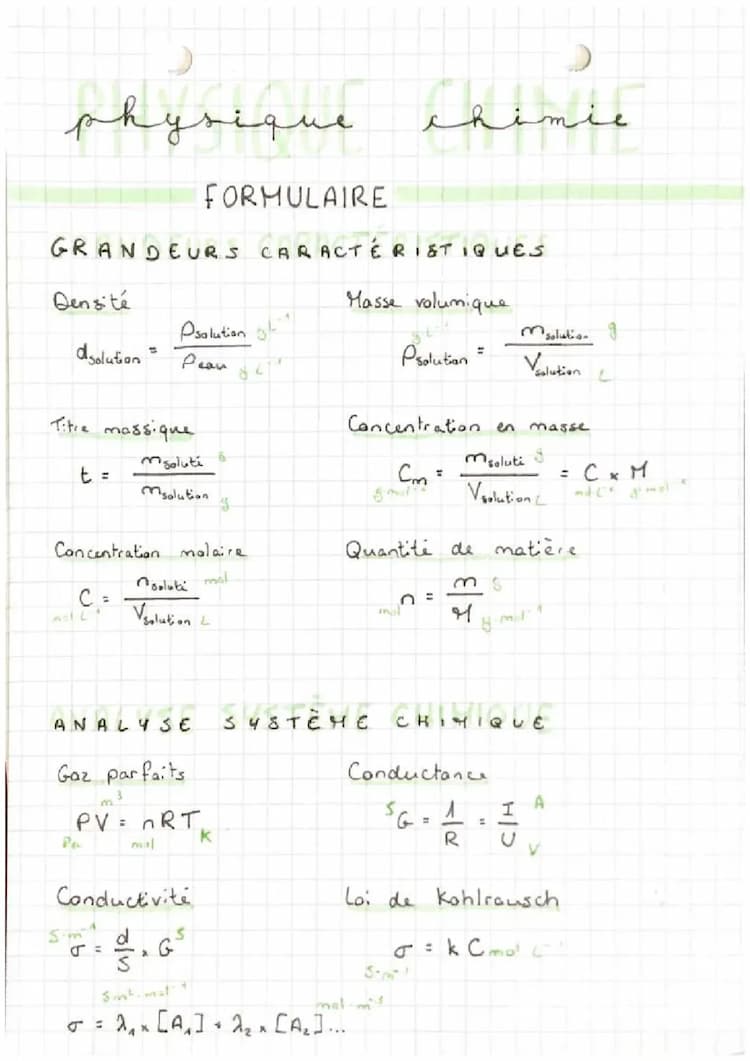 physique chimie
FORMULAIRE
GRANDEURS CARACTÉRISTIQUES
Densité
d_solution = ρ_solution / ρ_eau g L⁻¹ g L⁻¹
Masse volumique
ρ_solution = m_solution / V_solution g L⁻¹ g L
Titre massique
t = m_soluté / m_solution g g
Concentration en masse
C_m = m_soluté / V_solution = C × M g L
Concentration molaire
C = n_soluté / V_solution mol L⁻¹ mol L
Quantité de matière
n = m / M mol g g·mol⁻¹
ANALYSE SYSTÈME CHIMIQUE
Gaz parfaits
PV = nRT Pa m³ mol K
Conductance
G = 1 / R = I / U S A V
Conductivité
σ = d / S × G S·m⁻¹ S
Loi de Kohlrausch
σ = k C S·m⁻¹ mol L⁻¹
S·m²·mol⁻¹ mol·m⁻³
σ = λ₁ × [A₁] + λ₂ × [A₂]...